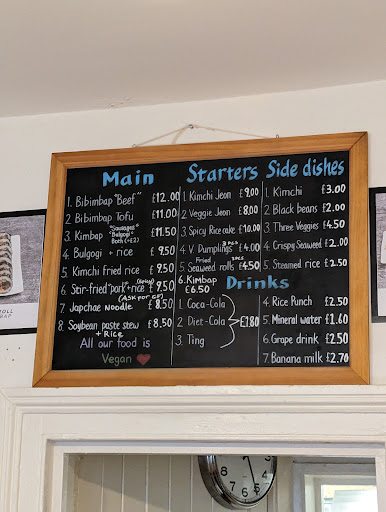 Main
1. Bibimbap "Beef" £12.00
2 Bibimbap Tofu £11.00
3. Kimbap "Sausages" "Bulgogi" Both (+£2) £11.50
4. Bulgogi + rice £9.50
5. Kimchi fried rice £9.50
6. Stir-fried "pork" + rice (spicy) £9.50
(ASK FOR GF)
7. Japchae Noodle £8.50
8 Soybean paste stew £8.50
+ Rice
All our food is
Vegan
Starters
1. Kimchi Jeon 2pcs £9.00
2. Veggie Jeon 2pcs £8.00
3. Spicy Rice cake £10.00
4 V. Dumplings 4pcs £4.00
5. Fried Seaweed rolls 3pcs £4.50
6. Kimbap
£6.50
Side dishes
1. Kimchi £3.00
2. Black beans £2.00
3. Three Veggies £4.50
4. Crispy Seaweed £2.00
5. Steamed rice £2.50
Drinks
1. Coca-Cola
2 Diet-Cola £1.80
3. Ting
4. Rice Punch £2.50
5. Mineral water £1.60
6. Grape drink £2.50
7. Banana milk £2.70
ROLL
BAP